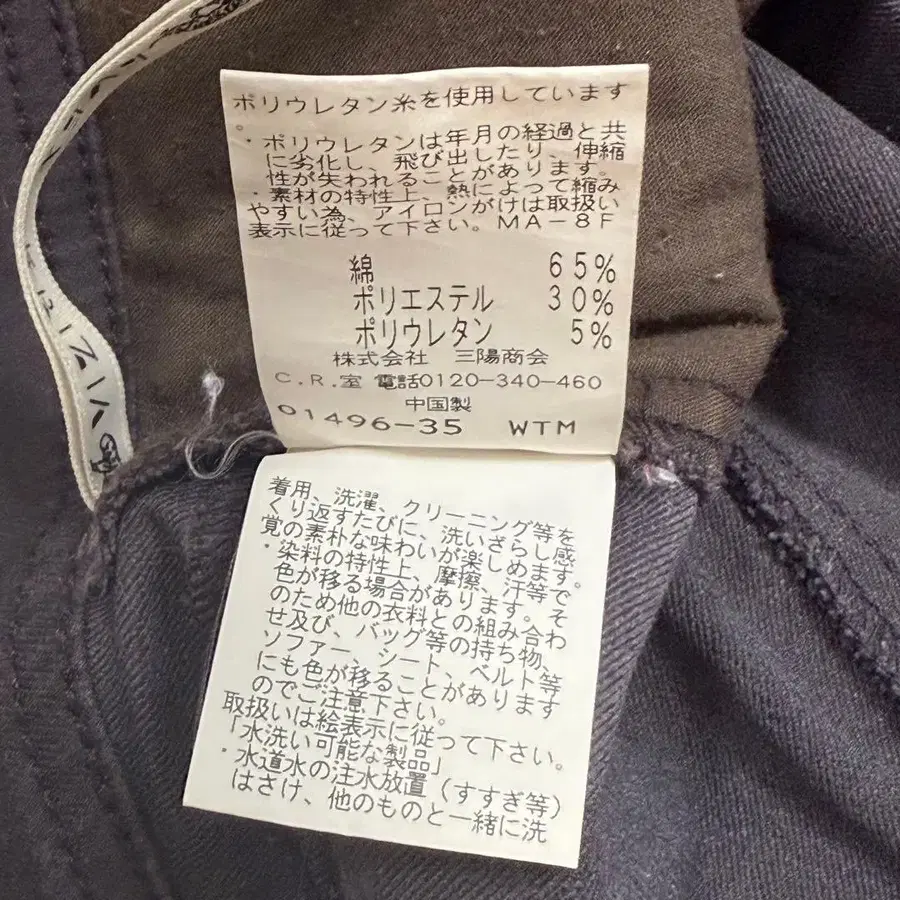 ポリウレタン糸を使用しています
。
・ポリウレタンは年月の経過と共
に劣化し、飛び出したり、伸縮
性が失われることがあります。
・素材の特性上、熱によって縮み
やすい為、アイロンがけは取扱い
表示に従って下さい。MA-8F
綿 65%
ポリエステル 30%
ポリウレタン 5%
株式会社 三陽商会
C.R.室 電話0120-340-460
中国製
01496-35 WTM
着用、洗濯、クリーニング等を
くり返すたびに、洗いざらし感
覚の素朴な味わいが楽しめます。
・染料の特性上、摩擦、汗等で
色が移る場合があります。そ
のため他の衣料との組み合わ
せ及び、バッグ等の持ち物、
ソファー、シート、ベルト等
にも色が移ることがあります
のでご注意下さい。
取扱いは絵表示に従って下さい。
「水洗い可能な製品」
・水道水の注水放置(すすぎ等)
はさけ、他のものと一緒に洗